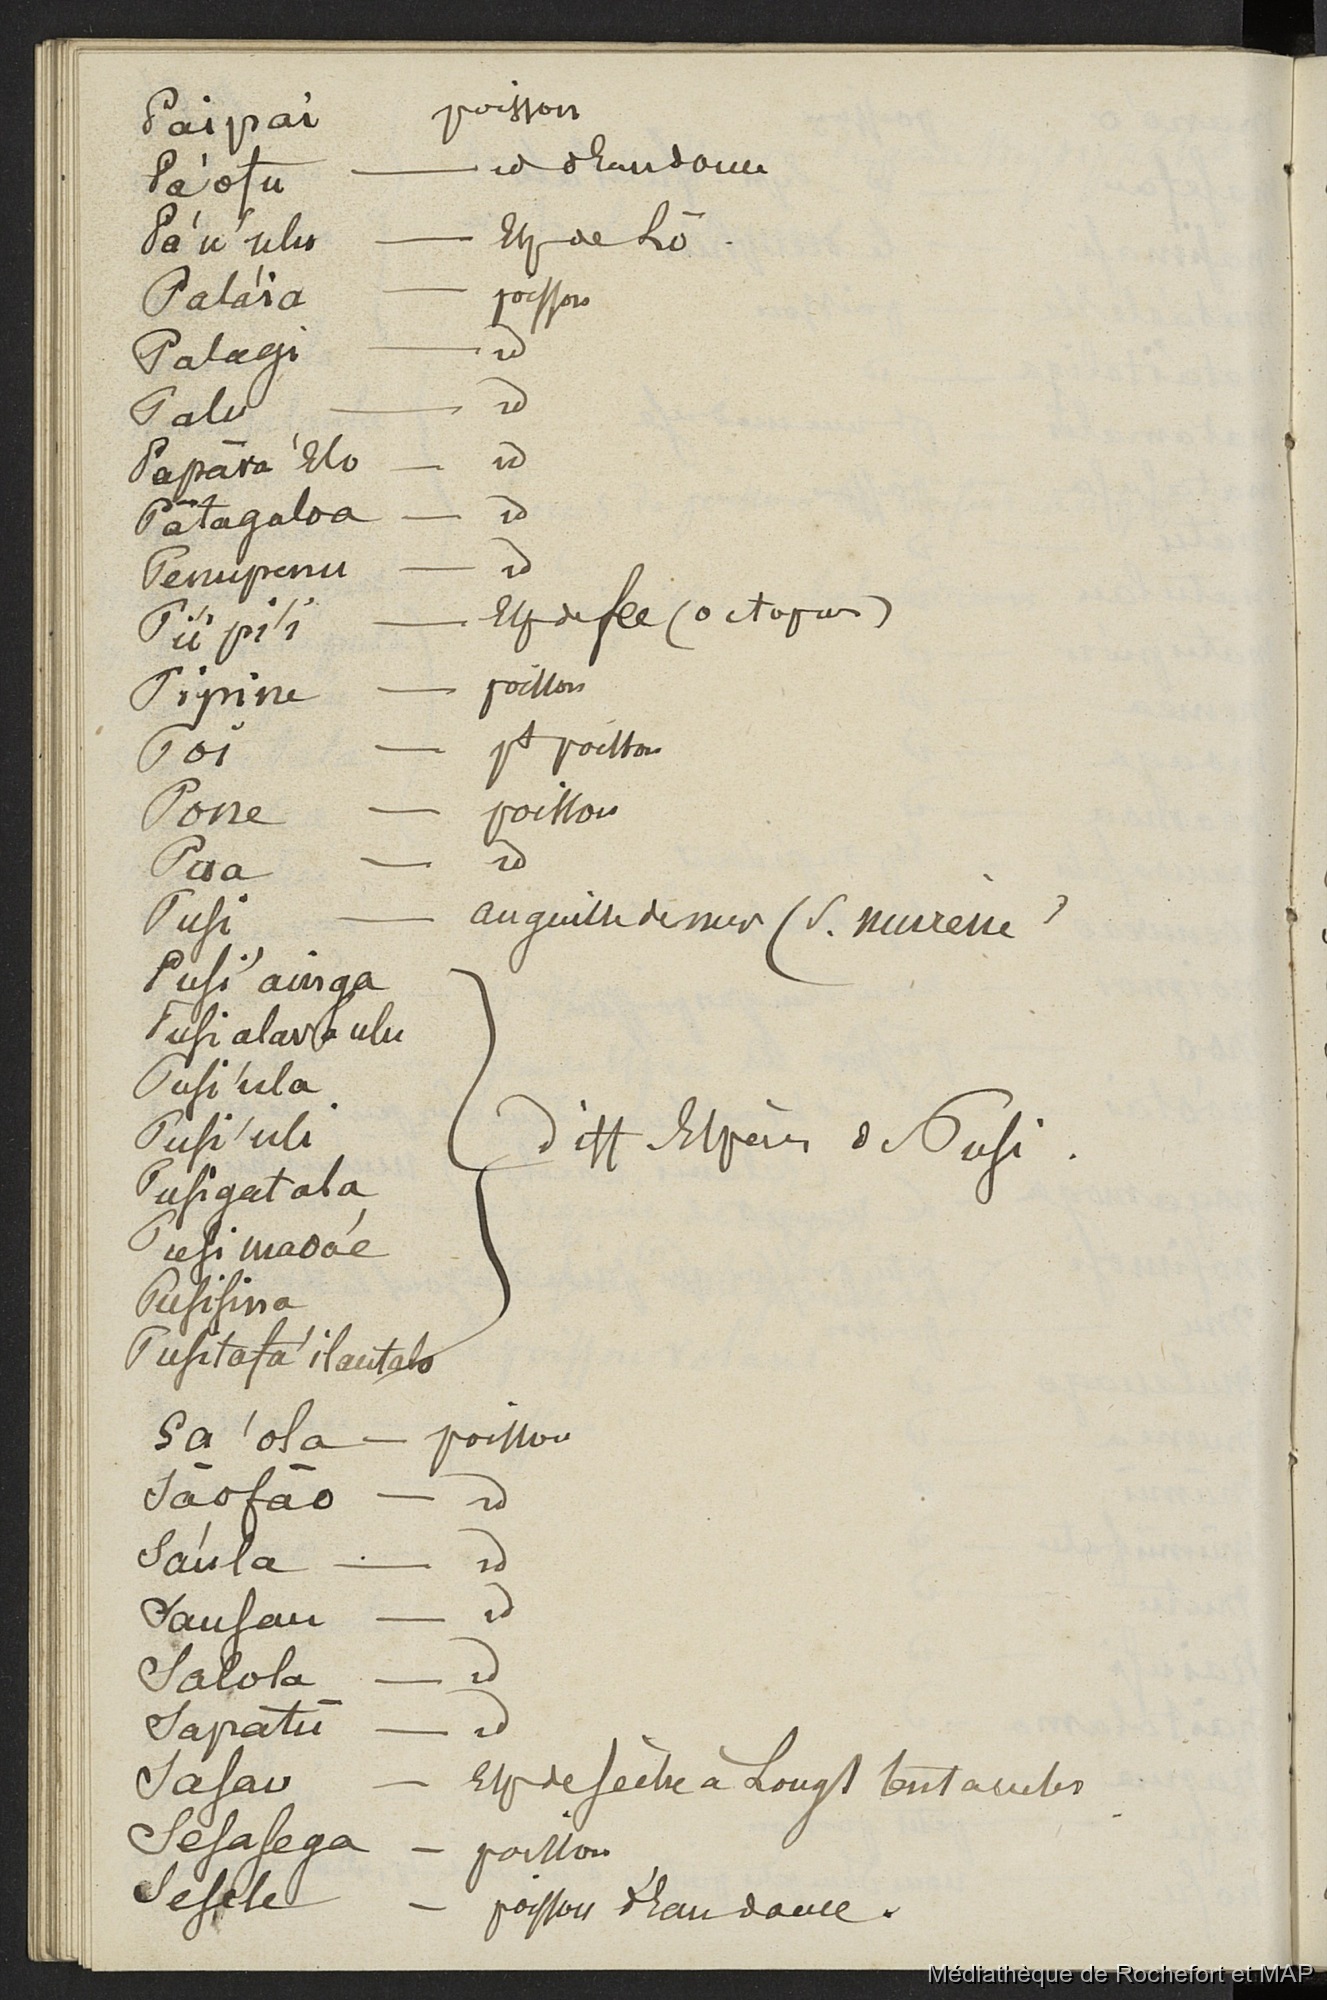 Paipai poisson
Pa'otu — id d'Eau douce
Pa'u'ulu — Esp de Lō.
Pala'ia — poisson
Palagi — id
Palu — id
Papāra 'Elo — id
Pātagaloa — id
Penupenu — id
Pi'i pi'i — Esp de fee (octopus)
Pipine — poisson
Poi — pt poisson
Pone — poisson
Paa — id
Pusi — anguille de mer (S. murène ?
Pusi 'ainga
Pusi alava ulu
Pusi 'ula
Pusi 'uli
Diff Espèces de Pusi.
Pusigatala
Pusi maoa'e
Pusisina
Pusitafa'ilautalo
Sa'ola — poisson
Sāofāo — id
Sa'ula — id
Sausau — id
Salola — id
Sapātū — id
Sasau — Esp de sèche à Longs tentacules
Sesasega — poisson
Sesele — poisson d'Eau douce.
Médiathèque de Rochefort et MAP